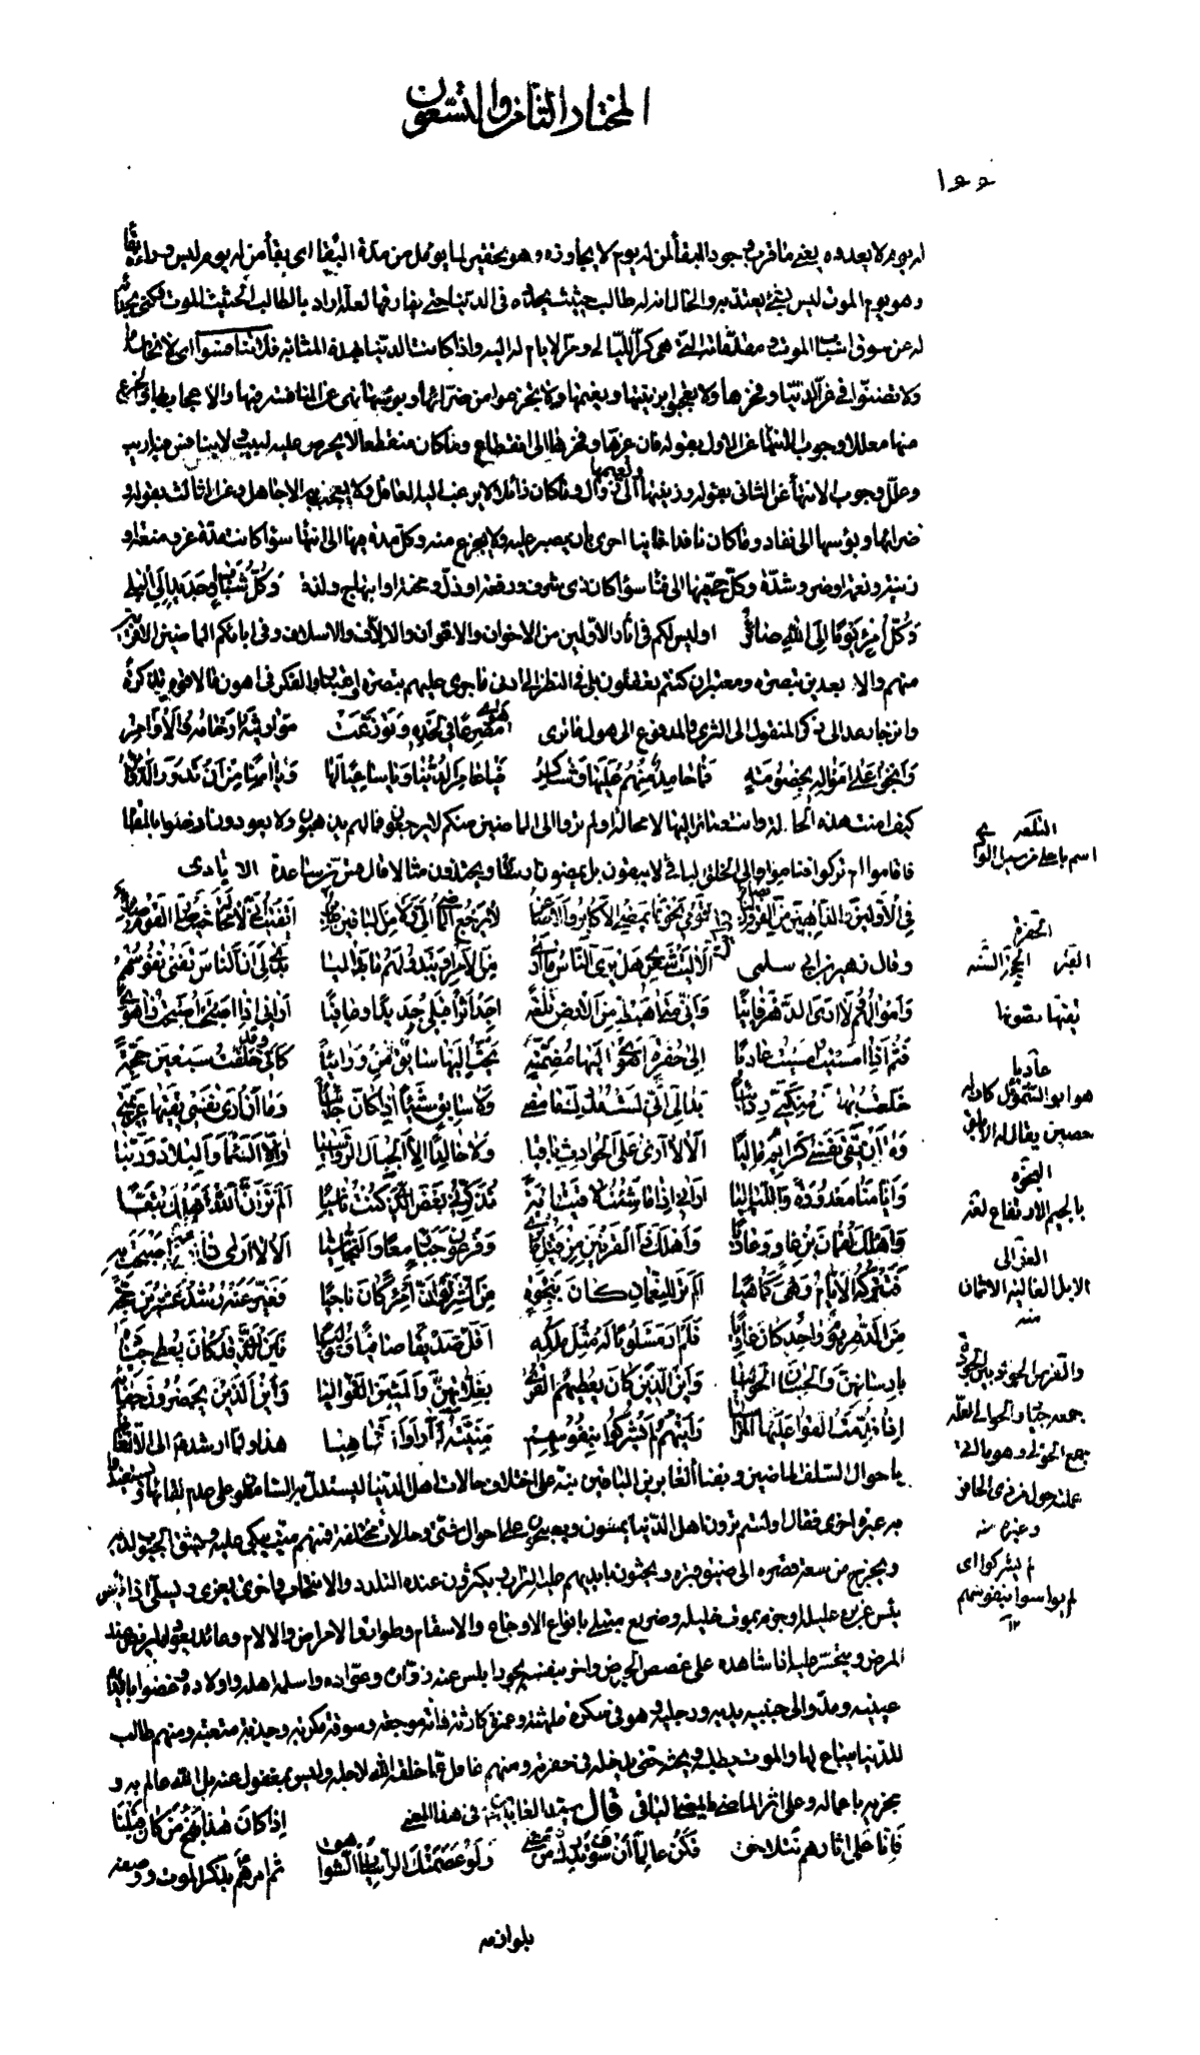 المختار الثامن والتسعون
١٥٥
له يوم لا يعدوه يعنى ما قرب وجود البقاء لمن له يوم لا يجاوزه وهو تحقير لما يؤمل من مدة البقاء اى بقاء من له يوم ليس وراءه بقاء
وهو يوم الموت ليس بشىء يعتد به والحال انه له طالب حثيث يحدوه فى الدنيا حتى يفارقها لعله اراد بالطالب الحثيث الموت فكنى
له عن سوق اسباب الموت و التى هى كر الليالى ومر الايام له اليه واذا كانت الدنيا بهذه المثابة فلا تنافسوا اى لا تحاسدوا
ولا تضنوا فى عز الدنيا وفخرها ولا تعجبوا بزينتها ونعيمها ولا تجزعوا من ضرائها وبؤسها نهى عن المنافسة فيها والاعجاب بها والجزع
منها معللا وجوب الانتهاء عن الاول بقوله فان عزها وفخرها الى انقطاع وما كان منقطعا لا يحرص عليه لبيب ولا ينافس فيه اريب
وعلل وجوب الانتهاء عن الثانى بقوله وزينتها ونعيمها الى زوال وما كان زائلا لا يرغب اليه العاقل ولا يعجب به الا جاهل وعن الثالث بقوله و
ضرائها وبؤسها الى نفاد وما كان نافدا فانيا احرى بان يصبر عليه ولا يجزع منه وكل مدة فيها الى انتهاء سواء كانت مدة عز ومنعة او
زينة ونعمة او ضر وشدة وكل حى فيها الى فناء سواء كان ذى شرف ورفعة او ذل ومحنة او ابتهاج ولذة وكل شباب او جديد الى البلى
وكل امرئ يوما الى الله صائر او ليس لكم فى آثار الاولين من الاخوان والاقران والالاف والاسلاف وفى ابائكم الماضين الاقرب
منهم والابعدين تبصرة ومعتبر ان كنتم تعقلون بلى فى النظر الى ادنى ما جرى عليهم تبصرة واعتبار والفكر فى اهون ما لاقوه تذكرة
وانزجار عد الى ذكر المنقول الى الثرى والمدفوع الى هول ما ترى هوى مصرعا فى لحده وتوزعت مواريثه ارحامه والاواصر
وانحوا على امواله بخصومة فما حامد منهم عليها وشاكر فيا عامر الدنيا ويا ساعيا لها ويا امنا من ان تدور الدوائر
كيف امنت هذه الحالة وانت صائر اليها لا محالة او لم تروا الى الماضين منكم لا يرجعون فما لهم يذهبون ولا يعودون ارضوا بالمقام
فاقاموا ام تركوا فناموا والى الخلف الباقى لا يبقون بل يمضون ويحتذون مثالا قال قس بن ساعدة الايادى
فى الاولين الذاهبين من القرون لنا بصائر ورايت قومى نحوها يمضى الاكابر والاصاغر لا يرجع الماضى الى ولا من الباقين غابر ايقنت انى لا محالة حيث صار القوم صائر
وقال زهير بن ابى سلمى الا ليت شعرى هل يرى الناس ما ارى من الامر او يبدو لهم ما بدا ليا بدا لى ان الناس تفنى نفوسهم
واموالهم ولا ارى الدهر فانيا وانى متى اهبط من الارض تلعة اجد اثرا قبلى جديدا وعافيا ارانى اذا اصبحت اصبحت ذا هوى
فثم اذا امسيت امسيت غاديا الى حفرة اهوى اليها مقيمة يحث اليها سائق من ورائيا كانى وقد خلفت سبعين حجة
خلعت بها عن منكبى ردائيا بدا لى انى لست مدرك ما مضى ولا سابق شيئا اذا كان جائيا وما ان ارى نفسى تقيها عزيمتى
وما ان تقى نفسى كرائم ماليا الا لا ارى على الحوادث باقيا ولا خالدا الا الجبال الرواسيا والا السماء والبلاد وربنا
وايامنا معدودة واللياليا ارانى اذا ما شئت لاقيت اية تذكرنى بعض الذى كنت ناسيا الم تر ان الله اهلك تبعا
واهلك لقمان بن عاد وعاديا واهلك ذا القرنين من قبل ما ترى وفرعون جبارا معا والنجاشيا الا لا ارى ذا امة اصبحت به
فتتركه الايام وهى كما هيا الم تر للنعمان كان بنجوة من الشر لو ان امرءا كان ناجيا فغير عنه رشد عشرين حجة
من الدهر يوم واحد كان غاويا فلم ار مسلوبا له مثل ملكه اقل صديقا صافيا ومواليا فاين الذى قد كان يعطى جياده
بارسانهن والحسان الحواليا واين الذين كان يعطيهم القرى بغلاتهن والمئين الغواليا واين الذين يحضرون جفانه
اذا قدمت القوا عليها المراسيا رايتهم لم يشركوا بنفوسهم منيته لما راوا انها هيا هذا ولما ارشدهم الى الاتعاظ
باحوال السلف الماضين وبقاء الغابرين الباقين نبه على اختلاف حالات اهل الدنيا ليستدل به السامعون على عدم بقائها ويستفيدوا
به عبرة اخرى فقال اولستم ترون اهل الدنيا يمسون ويصبحون على احوال شتى وحالات مختلفة فمنهم ميت يبكى عليه ويشق الجيوب لديه
ويخرج من سعة قصره الى ضيق قبره ويحثون بايديهم عليه التراب ويكثرون عنده التلدد والانتحاب واخر يعزى ويسلى اذا
يئس عن برء عليله او جزم بموت خليله وصريع مبتلى بانواع الاوجاع والاسقام وطوارق الامراض والالام وعائد يعود المريض عند
المرض ويتحسر عليه اذا شاهده على غصص الجرض واخر بنفسه يجود ابلس عنه زواره وعواده واسلمه اهله واولاده وغضوا بايديهم
عينيه ومدوا الى جنبيه يديه ورجليه وهو فى سكرة ملهثة وغمرة كارثة وانة موجعة وسوقة مكربة وجذبة متعبة ومنهم طالب
للدنيا مبتاع لها والموت يطلبه ويحثه حتى يدخله فى حفرته ومنهم غافل عما خلقه الله لاجله وليس بمغفول عنه بل الله عالم به و
يجزيه باعماله وعلى اثر الماضى ما يمضى الباقى قال سيد العابدين فى هذا المعنى اذا كان هذا نهج من كان قبلنا
فانا على اثارهم نتلاحق فكن عالما ان سوف تدرك من مضى ولو عصمتك الراسيات الشواهق ثم امرهم بذكر الموت ووصفه
بلوازمه
اسم باهلى
الحفرة
القبر
عاديا
هو ابو السموئل كان له
حصن يقال له الابلق
النجوة
بالجيم الارتفاع
الغوالى
الابل الغالية الاثمان
منه
وغيره منه
لم يشركوا اى
لم يواسوا بنفوسهم
١٢